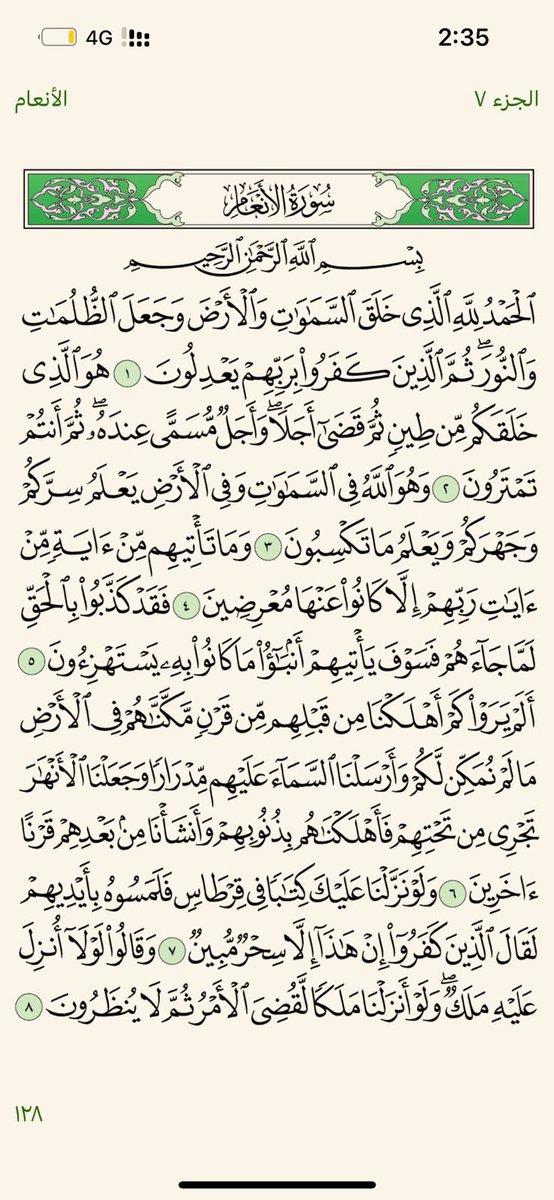 4G 2:35
الجزء ٧ الأنعام
سُورَةُ الأَنْعَامِ
بِسْمِ ٱللَّهِ ٱلرَّحْمَٰنِ ٱلرَّحِيمِ
ٱلْحَمْدُ لِلَّهِ ٱلَّذِي خَلَقَ ٱلسَّمَٰوَٰتِ وَٱلْأَرْضَ وَجَعَلَ ٱلظُّلُمَٰتِ
وَٱلنُّورَۖ ثُمَّ ٱلَّذِينَ كَفَرُوا۟ بِرَبِّهِمْ يَعْدِلُونَ ١ هُوَ ٱلَّذِي
خَلَقَكُم مِّن طِينٍ ثُمَّ قَضَىٰٓ أَجَلًاۖ وَأَجَلٌ مُّسَمًّى عِندَهُۥۖ ثُمَّ أَنتُمْ
تَمْتَرُونَ ٢ وَهُوَ ٱللَّهُ فِي ٱلسَّمَٰوَٰتِ وَفِي ٱلْأَرْضِ يَعْلَمُ سِرَّكُمْ
وَجَهْرَكُمْ وَيَعْلَمُ مَا تَكْسِبُونَ ٣ وَمَا تَأْتِيهِم مِّنْ ءَايَةٍ مِّنْ
ءَايَٰتِ رَبِّهِمْ إِلَّا كَانُوا۟ عَنْهَا مُعْرِضِينَ ٤ فَقَدْ كَذَّبُوا۟ بِٱلْحَقِّ
لَمَّا جَآءَهُمْ فَسَوْفَ يَأْتِيهِمْ أَنۢبَٰٓؤُا۟ مَا كَانُوا۟ بِهِۦ يَسْتَهْزِءُونَ ٥
أَلَمْ يَرَوْا۟ كَمْ أَهْلَكْنَا مِن قَبْلِهِم مِّن قَرْنٍ مَّكَّنَّٰهُمْ فِي ٱلْأَرْضِ
مَا لَمْ نُمَكِّن لَّكُمْ وَأَرْسَلْنَا ٱلسَّمَآءَ عَلَيْهِم مِّدْرَارًا وَجَعَلْنَا ٱلْأَنْهَٰرَ
تَجْرِي مِن تَحْتِهِمْ فَأَهْلَكْنَٰهُم بِذُنُوبِهِمْ وَأَنشَأْنَا مِنۢ بَعْدِهِمْ قَرْنًا
ءَاخَرِينَ ٦ وَلَوْ نَزَّلْنَا عَلَيْكَ كِتَٰبًا فِي قِرْطَاسٍ فَلَمَسُوهُ بِأَيْدِيهِمْ
لَقَالَ ٱلَّذِينَ كَفَرُوٓا۟ إِنْ هَٰذَآ إِلَّا سِحْرٌ مُّبِينٌ ٧ وَقَالُوا۟ لَوْلَآ أُنزِلَ
عَلَيْهِ مَلَكٌۖ وَلَوْ أَنزَلْنَا مَلَكًا لَّقُضِيَ ٱلْأَمْرُ ثُمَّ لَا يُنظَرُونَ ٨
١٢٨